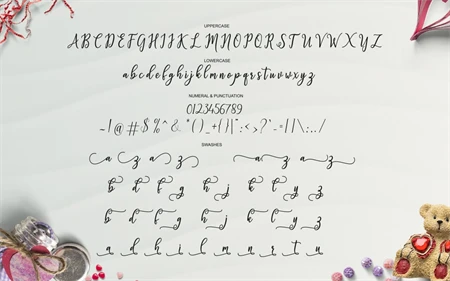 UPPERCASE
ABCDEFGHIJKLMNOPQRSTUVWXYZ
LOWERCASE
abcdefghijklmnopqrstuvwxyz
NUMERAL & PUNCTUATION
0123456789
~!@#$%^&*()_+{}|:<>?`-=[]\;,./
SWASHES
a z a z a z a z
b d f g h j k l y z
b d f g h j k l y z
a d h i k l m n r t u